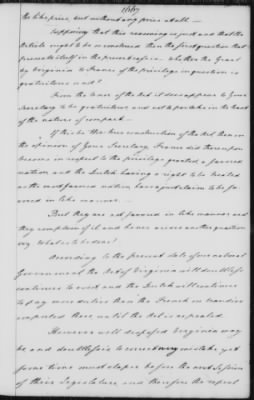 1667
the like price, but without any price at all —
Supposing that this reasoning is just and that the
Article ought to be so construed then the first question that
presents itself in the present case is — whether the Grant
by Virginia to France of the privilege in question is
gratuitous or not?
From the tenor of the Act it does appear to Your
Secretary to be gratuitous and not to partake in the least
of the nature of compact. —
If this be the true construction of the Act then in
the opinion of Your Secretary France did thereupon
become in respect to the privilege granted a favored
nation and the Dutch having a right to be treated
as the most favored nation have a just claim to be fa
vored in like manner. —
But they are not favored in like manner and
they complain of it and hence arises another question
viz. What is to be done?
According to the present state of our national
Government the Act of Virginia will doubtless
continue to exist and the Dutch will continue
to pay more duties than the French on brandies
imported there until the Act is repealed.
However well disposed Virginia may
be and doubtless is to correct any mistake, yet
some time must elapse before the next Session
of their Legislature and therefore the repeal